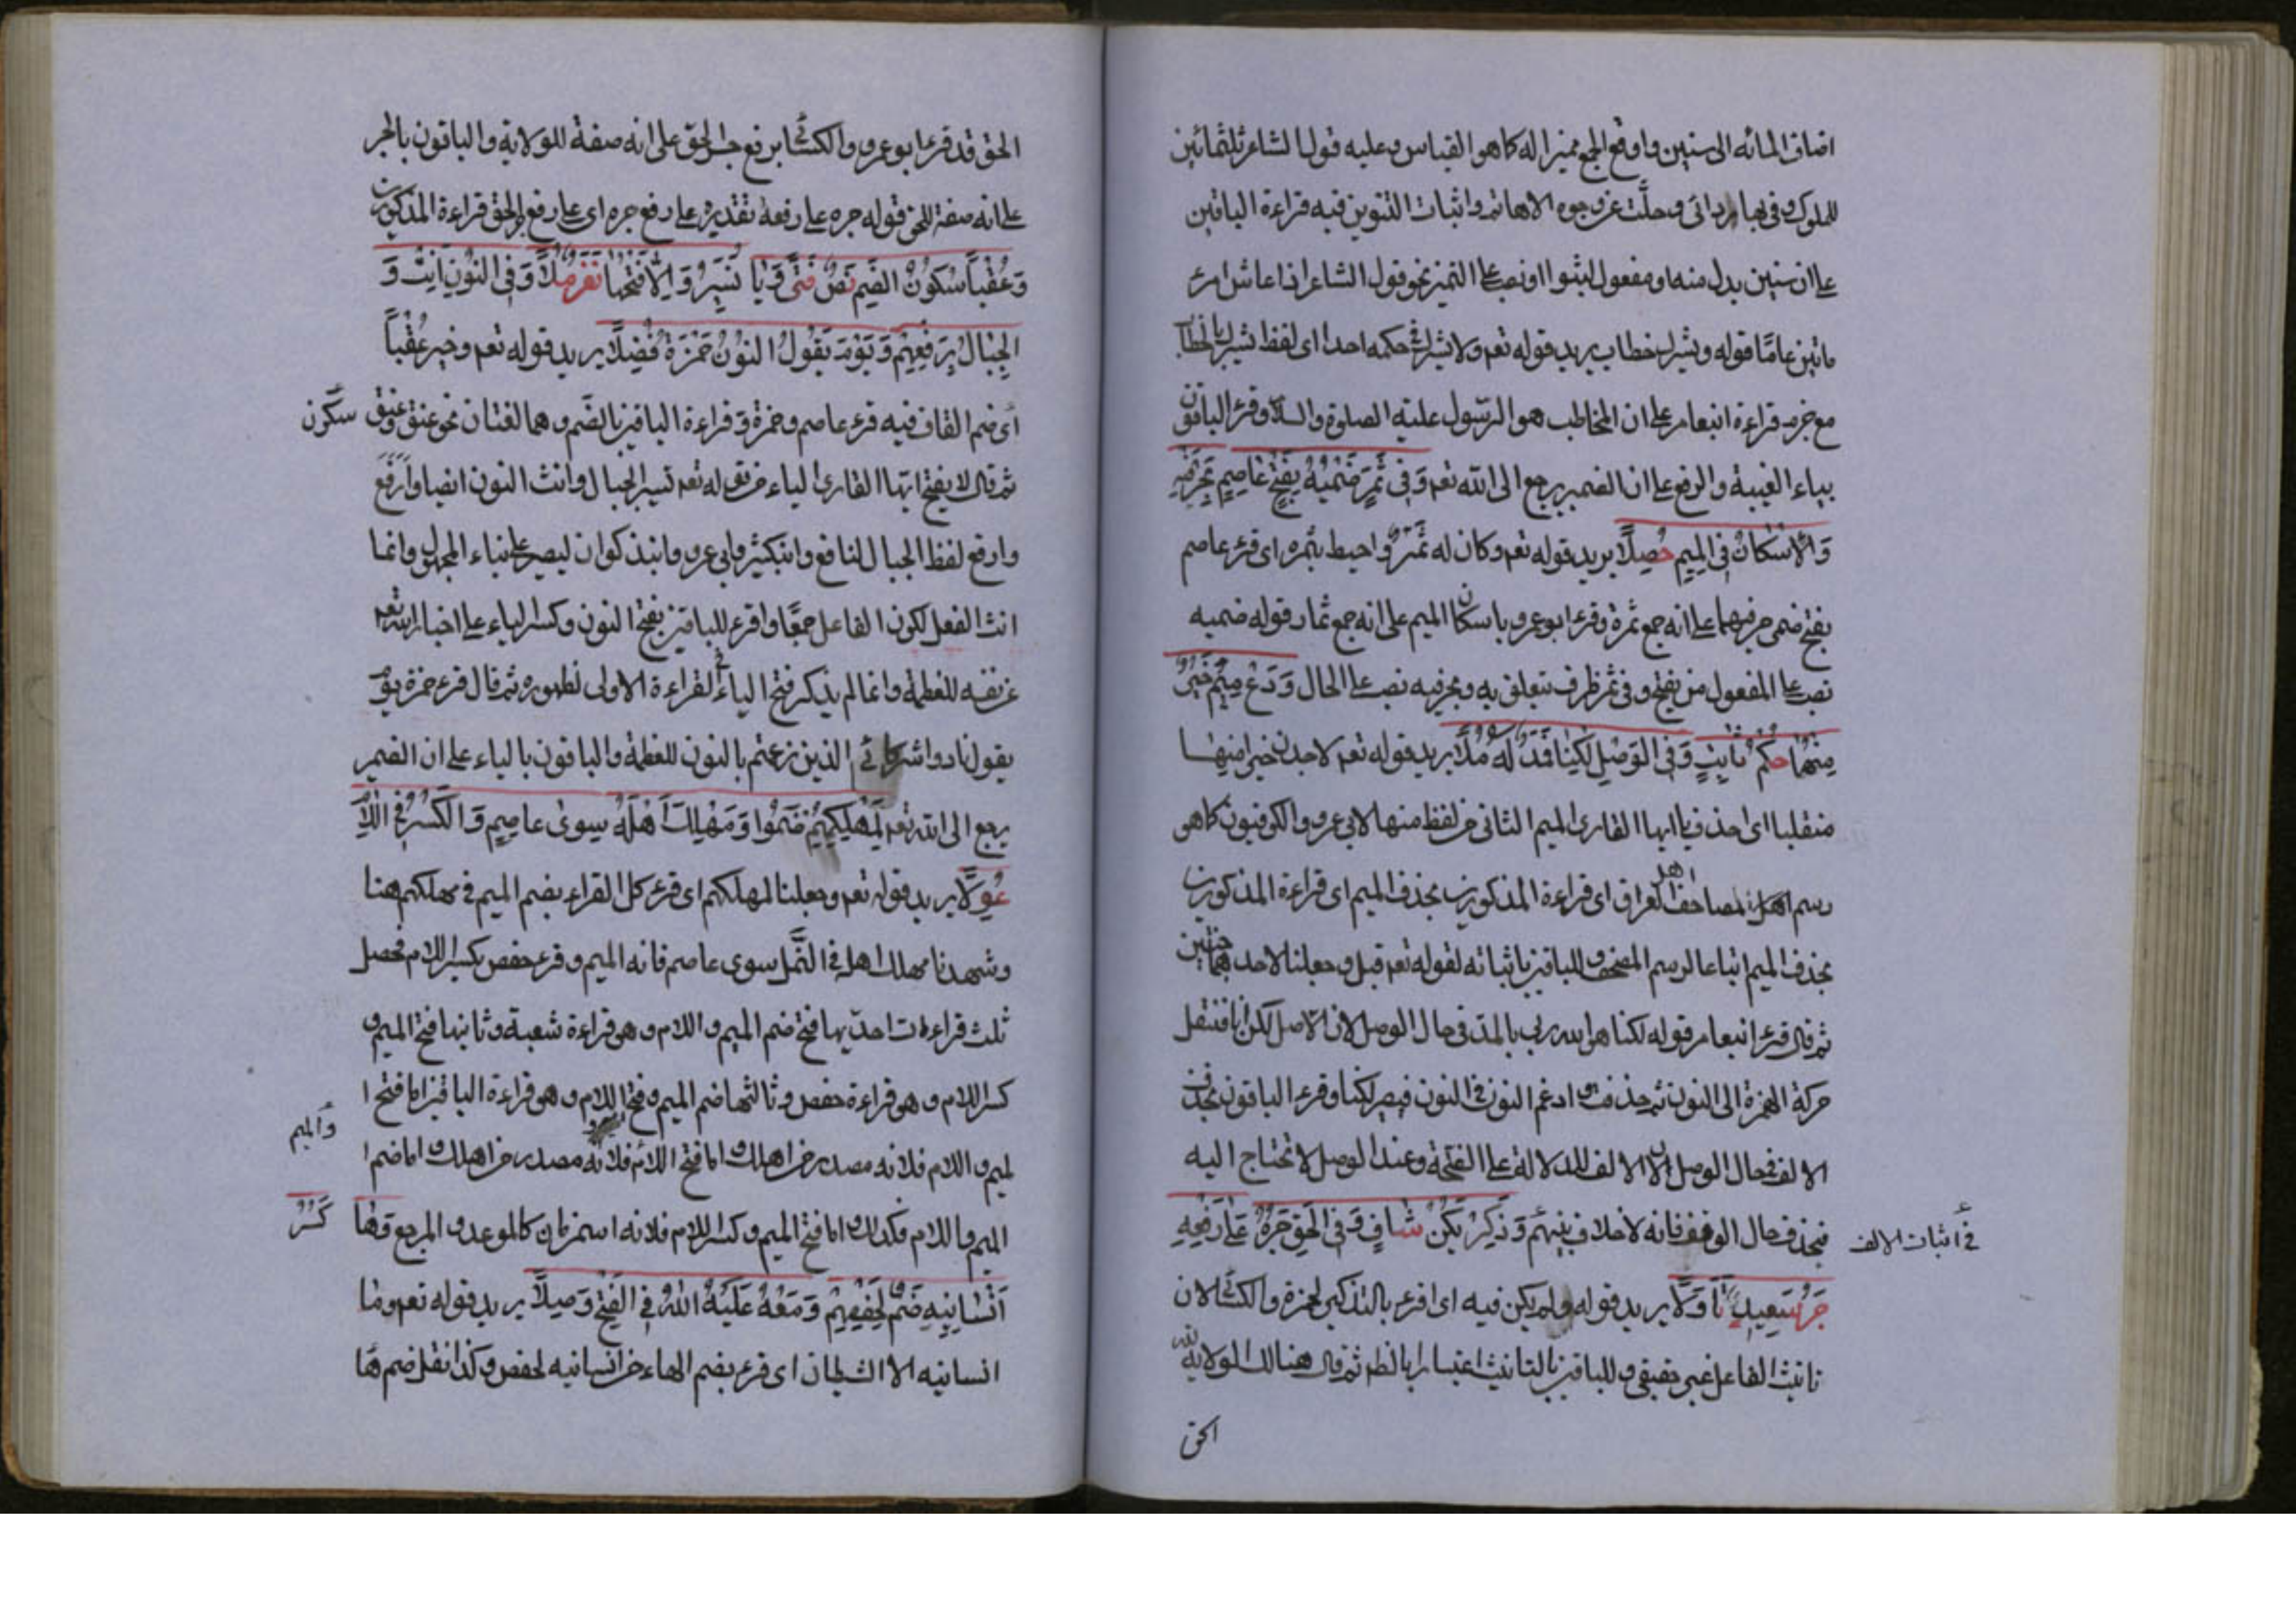 اضاف المائه الى سنين واوقع الجمع مميزا له كما هو القياس وعليه قول الشاعر ثلثمائين
للملوك وفى بها ردائى وجلّت عن وجوه الاهاتم واثبات التنوين فيه قراءة الباقين
على ان سنين بدل منه او مفعول لبثوا او نصب على التميز نحو قول الشاعر اذا عاش امرء
مائتين عامًا قوله وتشرك خطاب يريد قوله تعم ولا تشرك فى حكمه احدا اى لفظ تشرك بالخطاب
مع جزمه قراءة ابن عامر على ان المخاطب هو الرسول عليه الصلوة والسلام وقرء الباقون
بياء الغيبة والرفع على ان الضمير يرجع الى الله تعم وَفى ثُمُرٍ ضَمَّيْهُ يَفْتَحُ عَاصِمٍ بِحَرْفَيْهِ
وَالاسْكَانُ فى المِيمِ حُصِّلَا يريد قوله تعم وكان له ثمر واحيط بثمره اى قرء عاصم
بفتح ضمى حرفيهما على انه جمع ثمرة وقرء ابوعمرو باسكان الميم على انه جمع ثمار قوله ضميه
نصب على المفعول من يفتح وفى ثمر ظرف يتعلق به وبحرفيه نصب على الحال وَدَعْ مِيمَ خَيْرًا
مِنْهُمَا حُكْمُ ثَابِتٍ وَفى الوَصْلِ لَكِنَّا فَمُدَّ لَهُ مُلَا يريد قوله تعم لاجدن خيرا منهما
منقلبا اى احذف يا ايها القارى الميم الثانى من لفظ منهما لابى عمرو والكوفيون كما هى
رسم اهل مصاحف اهل العراق اى قراءة المذكورين بحذف الميم اى قراءة المذكورين
بحذف الميم اتباعا لرسم المصحف وللباقين باثباته لقوله تعم قبل وجعلنا لاحدهما جنتين
ثم قال قرء ابن عامر قوله لكنا هو الله ربى بالمد فى حال الوصل لان الاصل لكن انا فنقل
حركة الهمزة الى النون ثم حذفت وادغم النون فى النون فيصير لكنا وقرء الباقون بحذف
الالف فى حال الوصل لان الالف للدلالة على الفتحة وعند الوصل لا تحتاج اليه
فيحذف حال الوقف فانه لا خلاف بينهم وَذَكِّرْ يَكُنْ شَافٍ وَفى الحَقِّ جَرُّهُ عَلَى رَفْعِهِ
فى اثبات الالف
حَبْرٌ سَعِيدٌ تَأَوَّلَا يريد قوله ولم يكن فيه اى اقرء بالتذكير لحمزة والكسائى لان
تانيث الفاعل غير حقيقى وللباقين بالتانيث اعتبارا بالظم ثم قال هنالك الولاية لله
الحق
الحق قد قرء ابوعمرو والكسائى برفع جر الحق على انه صفة للولاية والباقون بالجر
على انه صفة للحق قوله جره على رفعه تقديره على رفع جره اى على رفع جر الحق قراءة المذكورين
وَعُقْبًا سُكُونُ الضَّمِ نَصُّ فَتًى وَيَا نُسَيِّرُ وَالَى فَتْحَهَا نَفَرٌ مَلَا وَفى النُّونِ اَنِّثْ وَ
الجِبَالَ بِرَفْعِهِمْ وَيَوْمَ يَقُولُ النُّونُ حَمْزَةُ فَضَّلَا يريد قوله تعم وخير عُقْبًا
اى ضم القاف فيه قرء عاصم وحمزة وقراءة الباقين بالضم وهما لغتان نحو عنق وعنق سكون
ثم قال لا يفتح ايها القارئ الياء من قوله تعم تسير الجبال وانث النون ايضا وارفع
وارفع لفظ الجبال لنافع وابن كثير وابى عمرو وابن ذكوان ليصير على بناء المجهول وانما
انث الفعل لكون الفاعل جمعًا واقرء للباقين بفتح النون وكسر الياء على اخبار الله تعم
عن نفسه للعظمة وانما لم يذكر فتح الياء فى القراءة الاولى لظهوره ثم قال قرء حمزة يوم
يقول نادوا شركائى الذين زعمتم بالنون للعظمة والباقون بالياء على ان الضمير
يرجع الى الله تعم لِمَهْلِكِهِمْ ضَمُّوا وَمَهْلِكَ اَهْلِهِ سِوى عاصِمٍ وَالكَسْرُ فى اللَّامِ
عُوِّلَا يريد قوله تعم وجعلنا لمهلكهم اى قرء كل القراء بضم الميم فى مهلكهم هنا
وشهدنا مهلك اهله فى النّمل سوى عاصم فانه الميم وقرء حفص بكسر اللام فحصل
ثلث قراءات احديها فتح ضم الميم واللام وهو قراءة شعبة وثانيها فتح الميم و
كسر اللام وهو قراءة حفص وثالثها ضم الميم وفتح اللام وهو قراءة الباقين اما فتح ا
والميم
لميم واللام فلانه مصدر من اهلك اما فتح اللام فلانه مصدر من اهلك اما ضم ا
الميم واللام فكذلك اما فتح الميم وكسر اللام فلانه اسم زمان كالموعد والمرجع وَهَا كَسْرِ
اَنْسَانِيهِ ضُمَّ لِحَفْصِهِمْ وَمَعْهُ عَلَيْهُ اللهَ فى الفَتْحِ وَصَّلَا يريد قوله تعم وما
انسانيه الا الشيطان اى قرء بضم الهاء من انسانيه لحفص وكذا نقل ضم ها